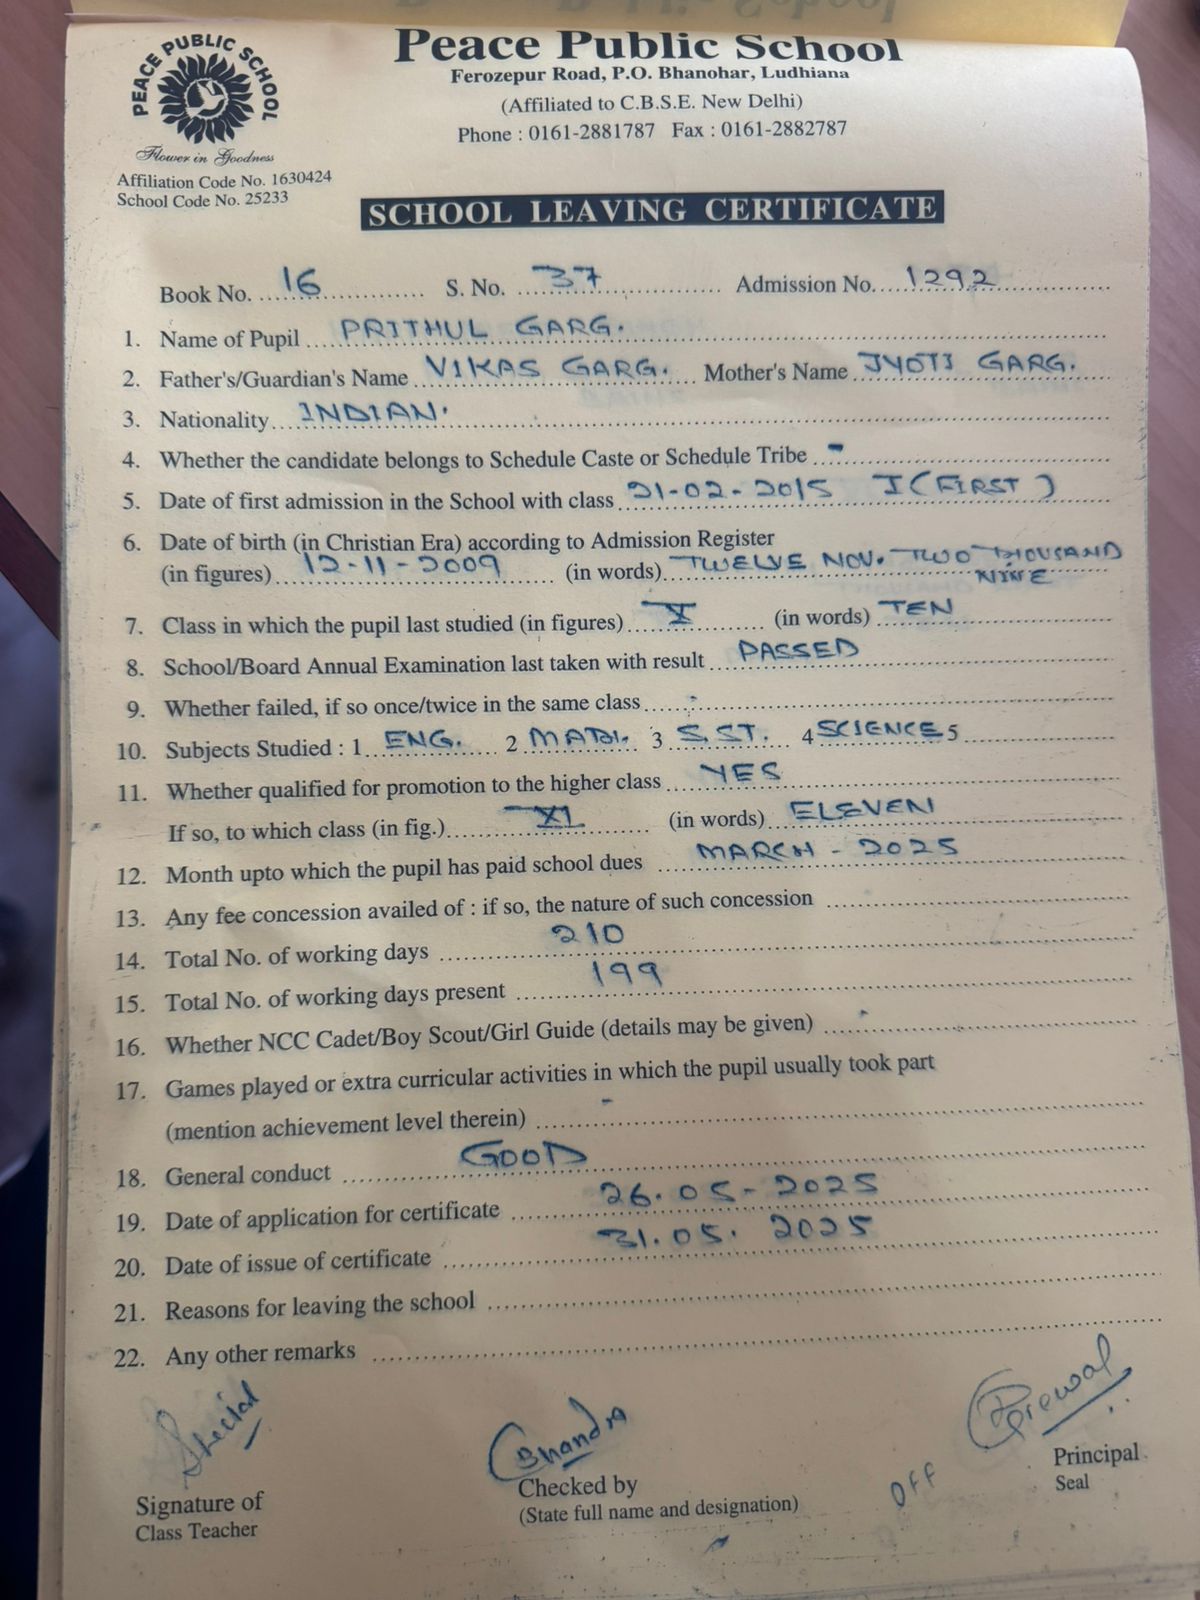 Peace Public School
PEACE PUBLIC SCHOOL
Ferozepur Road, P.O. Bhanohar, Ludhiana
(Affiliated to C.B.S.E. New Delhi)
Phone : 0161-2881787 Fax : 0161-2882787
Flower in Goodness
Affiliation Code No. 1630424
School Code No. 25233
SCHOOL LEAVING CERTIFICATE
Book No. 16 S. No. 37 Admission No. 1292
1. Name of Pupil PRITHUL GARG.
2. Father's/Guardian's Name VIKAS GARG. Mother's Name JYOTI GARG.
3. Nationality INDIAN.
4. Whether the candidate belongs to Schedule Caste or Schedule Tribe -
5. Date of first admission in the School with class 21-02-2015 I (FIRST)
6. Date of birth (in Christian Era) according to Admission Register
(in figures) 12-11-2009 (in words) TWELVE NOV. TWO THOUSAND
NINE
7. Class in which the pupil last studied (in figures) X (in words) TEN
8. School/Board Annual Examination last taken with result PASSED
9. Whether failed, if so once/twice in the same class
10. Subjects Studied : 1 ENG. 2 3 S.ST. 4 SCIENCE 5
11. Whether qualified for promotion to the higher class YES
If so, to which class (in fig.) XI (in words) ELEVEN
12. Month upto which the pupil has paid school dues MARCH - 2025
13. Any fee concession availed of : if so, the nature of such concession
14. Total No. of working days 210
15. Total No. of working days present 199
16. Whether NCC Cadet/Boy Scout/Girl Guide (details may be given)
17. Games played or extra curricular activities in which the pupil usually took part
(mention achievement level therein) -
18. General conduct GOOD
19. Date of application for certificate 26.05-2025
20. Date of issue of certificate 31.05.2025
21. Reasons for leaving the school
22. Any other remarks
Bhandra
Grewal
Signature of
Class Teacher
Checked by
(State full name and designation)
Off
Principal
Seal